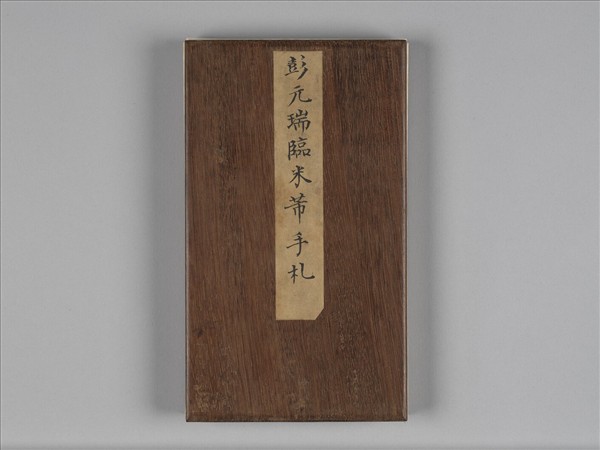 彭元瑞臨米芾手札